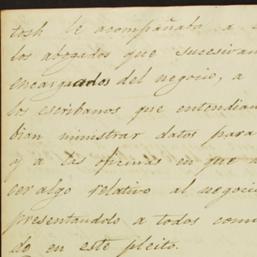 tosh le acompañaba a
los abogados que sucesivam
encargados del negocio, a
los escribanos que entendian
bian ministrar datos para
y a las oficinas en que
cer algo relativo al negocio
presentandolo a todos como
do en este pleito.